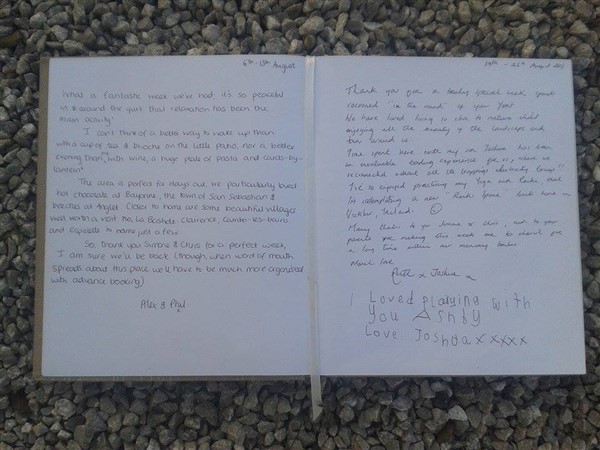 6th - 13th August
What a fantastic week we've had, it's so peaceful
in & around the yurt that relaxation has been the
main activity!
I can't think of a better way to wake up than
with a cup of tea & brioche on the little patio, nor a better
evening than with wine, a huge plate of pasta and cards-by-
lantern!
The area is perfect for days out, we particularly loved
hot chocolate at Bayonne, the town of San Sebastian &
beaches at Anglet. Closer to home are some beautiful villages
well worth a visit too, La Bastide-Clairence, Cambo-les-bains
and Espelette to name just a few.
So, thank you Simone & Chris for a perfect week,
I am sure we'll be back (though, when word of mouth
spreads about this place we'll have to be much more organised
with advance booking)
Alex & Phil
x
August
Thank you for a really special week spent
cocooned "in the round" of your Yurt
We have loved living so close to nature whilst
enjoying all the beauty of the landscape and
around us.
Time spent here with my son Joshua has been
an invaluable bonding experience for us, where we
reconnected without all the trappings electricity brings!!
I've so enjoyed practising my Yoga and Reiki and
I'm contemplating a new "Reiki Space" back home in
Ireland.
Many thanks to you Simone & Chris, and to your
parents for making this week one to cherish for
a long time within our memory banks
Much love
Ruth & Joshua x
I Loved playing with
you Ashby
Love Joshua x xxxx